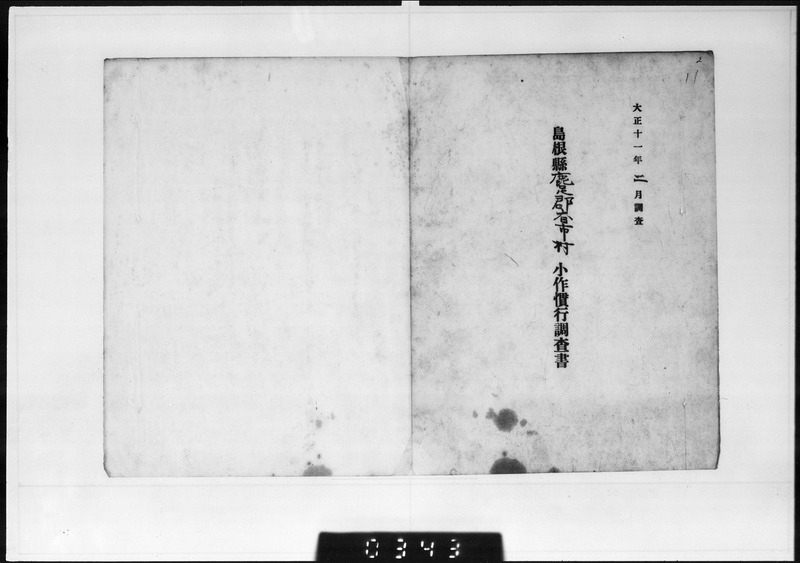 2
11
大正十一年二月調査
島根縣鹿足郡日市村小作慣行調査書
0343